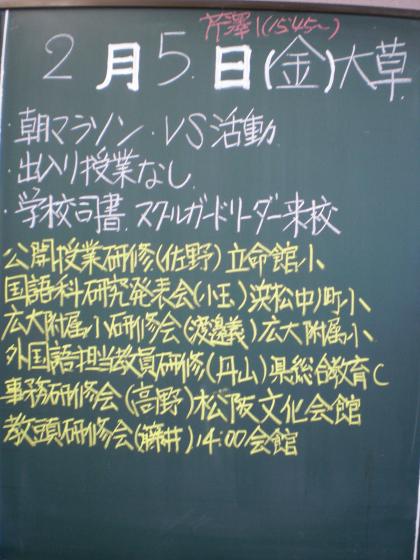 芹澤1(15:45〜)
2月5日(金)大草
・朝マラソン・VS活動
・出入り授業なし
・学校司書.スクールガードリーダー来校
公開授業研修(佐野)立命館小
国語科研究発表会(小玉)浜松中ノ町小
広大附属小研修会(渡邉義)広大附属小
外国語担当教員研修(丹山)県総合教育C
事務研修会(高野)松阪文化会館
教頭研修会(藤井)14:00会館